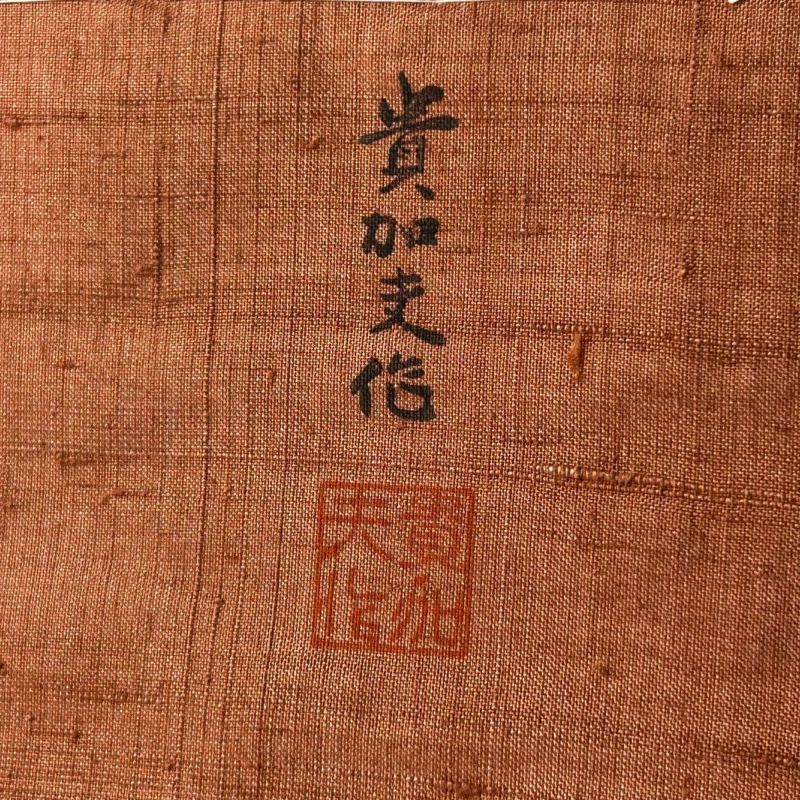 貴加夫作
貴加
夫作